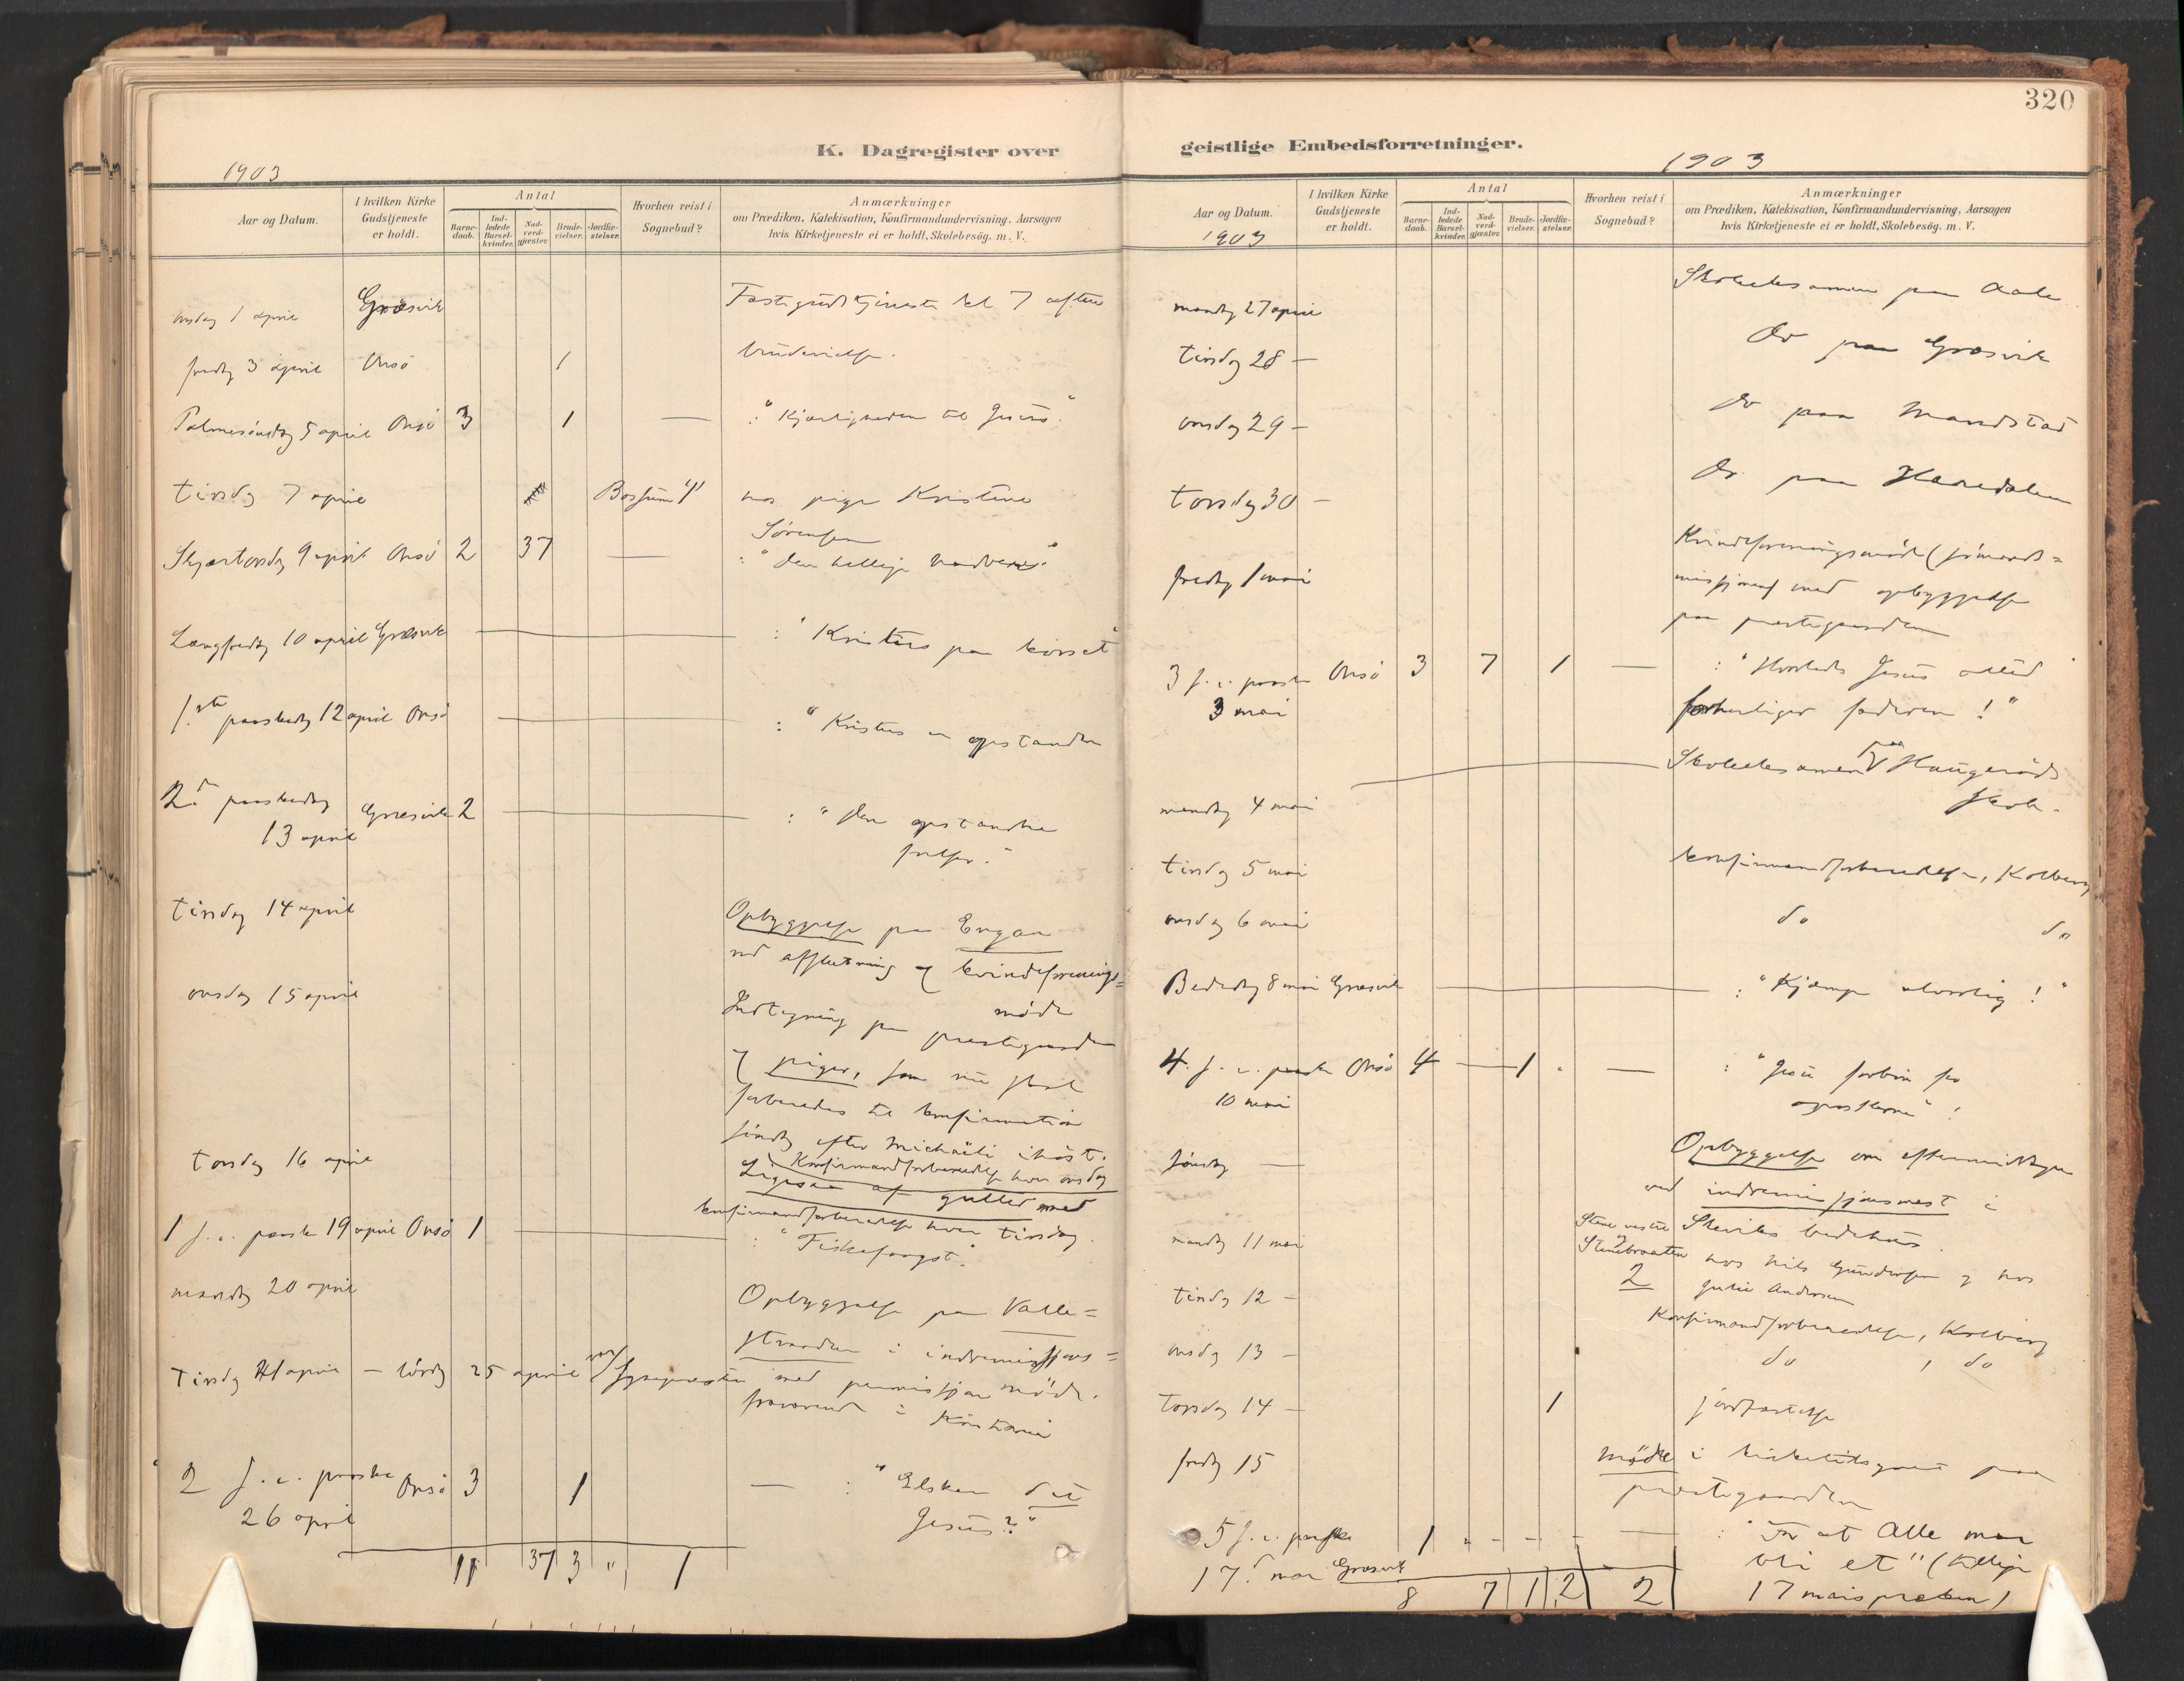 320
K. Dagregister over
1903
Aar og Datum.
I hvilken Kirke Gudstjeneste er holdt.
Antal
Barne-daab.
Ind-ledede Barsel-kvinder.
Nad-verd-gjester.
Brude-vielser.
Jordfæ-stelser.
Hvorhen reist i Sognebud?
Anmærkninger
om Prædiken, Katekisation, Konfirmandundervisning, Aarsagen
hvis Kirketjeneste ei er holdt, Skolebesög. m. V.
onsdag 1 april Græsvik Fastegudstjeneste kl 7 aften
fredag 3 april Onsö 1 brudevielse.
Palmesöndag 5 april Onsö 3 1 — : "Kjærligheden til Jesus."
tirsdag 7 april Bossum 1 hos pige Kristine
Sörensen
Skjærtorsdag 9 april Onsö 2 37 — : "Den hellige nadvere"
Langfredag 10 april Græsvik — : "Kristus paa korset"
1.ste paaskedag 12 april Onsö — : "Kristus er opstanden
2. paaskedag Græsvik 2 — : "Den opstandne
13 april frelser."
tirsdag 14 april
Opbyggelse paa Engan
ved afslutning af kvindeforenings=
möde
onsdag 15 april
Indtegning paa prestegaarden
af piger, som nu skal
forberedes til konfirmation
söndag efter Michaeli ihöst.
Konfirmandforberedelse hver onsdag
torsdag 16 april
Ligesaa af gutter med
konfirmandforberedelse hver tirsdag.
1 s. e. paaske 19 april Onsö 1 — : "Fiskefangst."
mandag 20 april
Opbyggelse paa Valle=
stranden i indremissjons=
möde.
tirsdag 21 april — lördag 25 april var sognepresten med permissjon
fraværende i Kristiania
2 s. e. paaske Onsö 3 1 — : "Elsker du
26 april Jesus?"
11 37 3 " 1
geistlige Embedsforretninger.
1903
Aar og Datum.
1903
I hvilken Kirke Gudstjeneste er holdt.
Antal
Barne-daab.
Ind-ledede Barsel-kvinder.
Nad-verd-gjester.
Brude-vielser.
Jordfæ-stelser.
Hvorhen reist i Sognebud?
Anmærkninger
om Prædiken, Katekisation, Konfirmandundervisning, Aarsagen
hvis Kirketjeneste ei er holdt, Skolebesög. m. V.
mandag 27 april Skoleeksamen paa Aale
tirsdag 28 — Do paa Græsvik
onsdag 29 — Do paa Mandstad
torsdag 30 — Do paa Haredalen
fredag 1 mai
Kvindeforeningsmöde (sömands=
missjonen) med opbyggelse
paa prestegaarden
3 s. e. paaske Onsö 3 7 1 — : "Hvorledes Jesus altid
3 mai forherliger faderen!"
mandag 4 mai Skoleeksamen paa Haugeröds
skole.
tirsdag 5 mai konfirmandforberedelse, Kolberg
onsdag 6 mai do do
Bededag 8 mai Græsvik — : "Kjæmp alvorlig!"
4. s. e. paaske Onsö 4 — 1 . — : "Jesu forbön for
10 mai apostlerne"!
söndag —
Opbyggelse om eftermiddagen
ved indremissjonsmöst i
Skeviks bedehus.
mandag 11 mai
Stene vestre
og Stenebraaten hos Nils Gundersen og hos
2 Julie Andersen
tirsdag 12 — Konfirmandforberedelse, Kolberg
onsdag 13 — do , do
Torsdag 14 — 1 jordfæstelse
fredag 15 möde i kirketilsynet paa
prestegaarden
5 s. e. paaske 1 " - - - — : "For at Alle maa
17. mai Græsvik bli et" (tillige
17 maispræken)
8 7 1 2 2